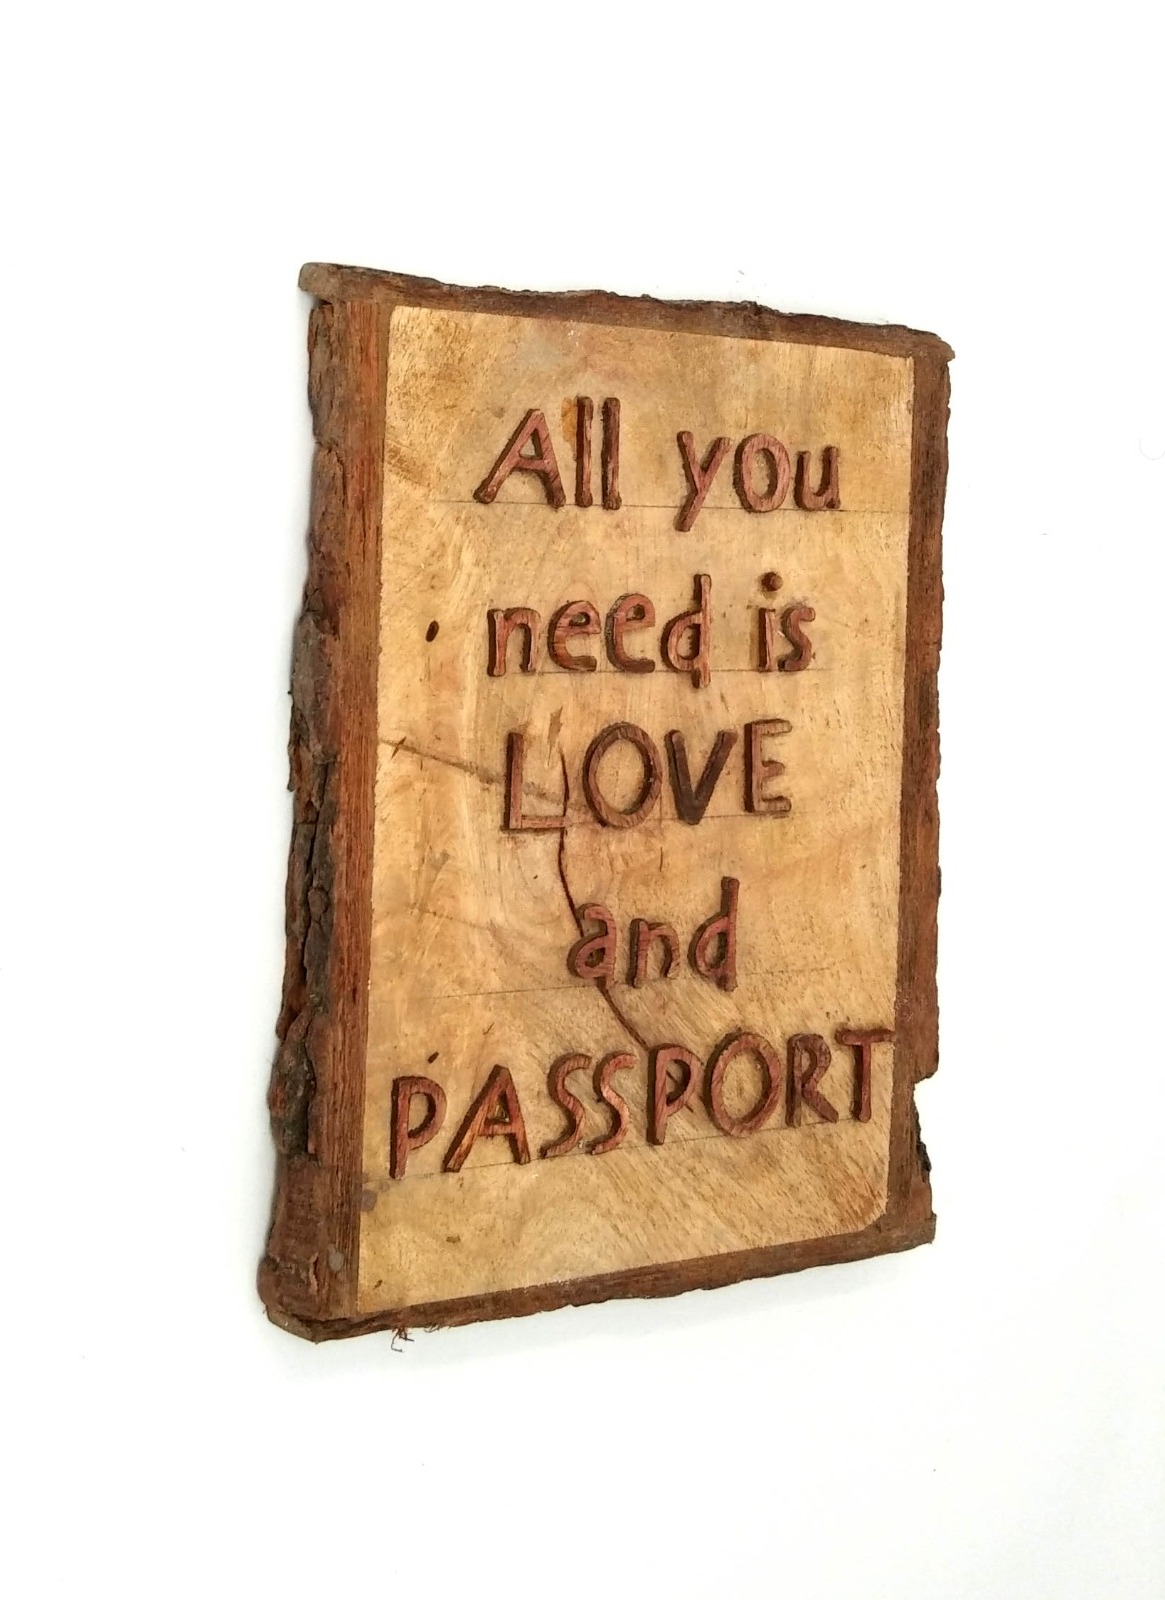 All you
need is
LOVE
and
PASSPORT